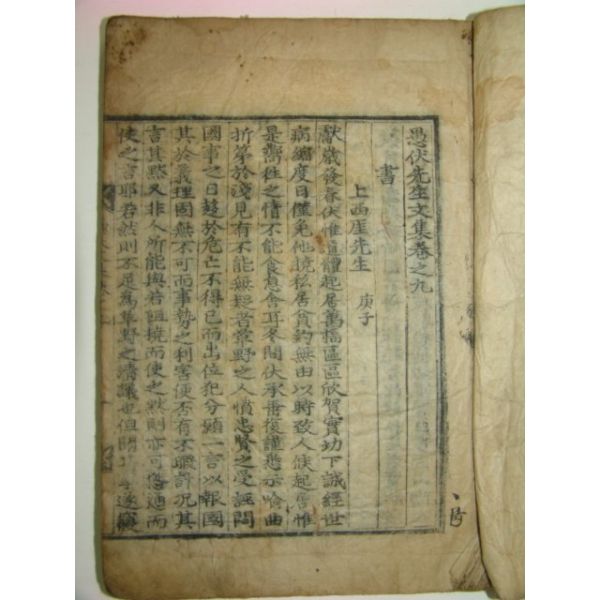 愚伏先生文集卷之九
書
上西厓先生 庚子
獻歲發春伏惟道體起居萬福區區欣賀實切下誠經世
病縮度日僅免他撓私居貧約無由以時致人候起居惟
是嚮往之情不能食息舍耳冬間伏承垂復謹悉示喩曲
折第於淺見有不能無疑者草野之人憤忠賢之受誣悶
國事之日趨於危亡不得已而出位犯分願一言以報國
其於義理固無不可而事勢之利害便否有不暇計況其
言其默又非人所能與若沮撓而使之默則亦可傍通而
使之言耶若然則不足爲草野之淸議也但聞遂寢